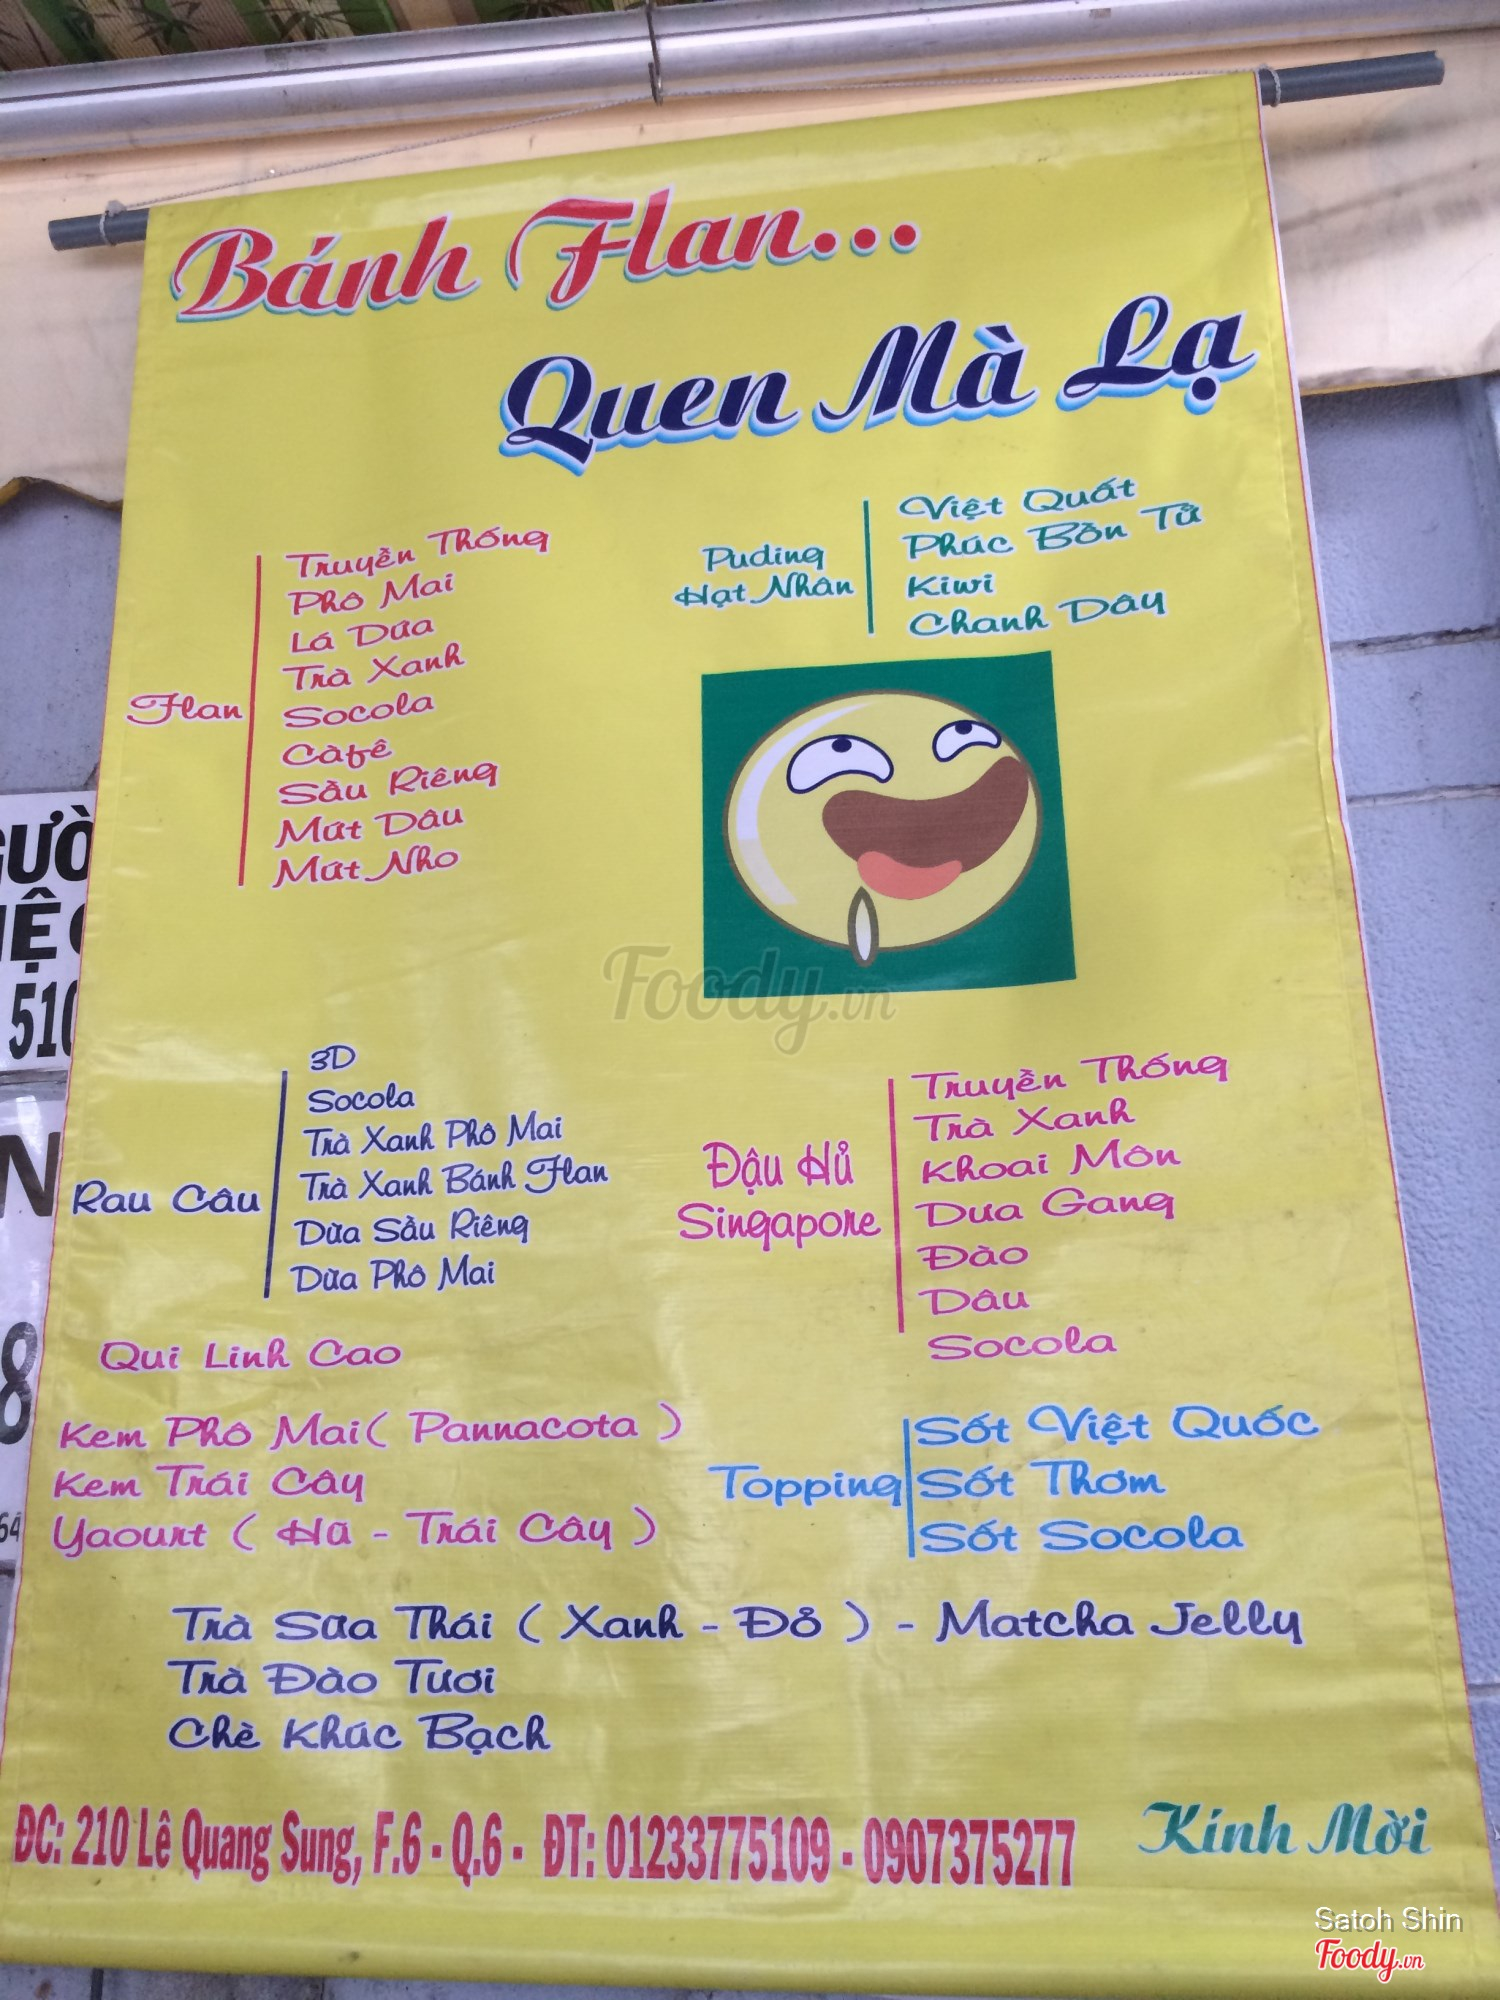 Bánh Flan...
Quen Mà Lạ
Flan
Truyền Thống
Phô Mai
Lá Dứa
Trà Xanh
Socola
Càfê
Sầu Riêng
Mứt Dâu
Mứt Nho
Puding
Hạt Nhân
Việt Quất
Phúc Bồn Tử
Kiwi
Chanh Dây
Foody.vn
Rau Câu
3D
Socola
Trà Xanh Phô Mai
Trà Xanh Bánh Flan
Dừa Sầu Riêng
Dừa Phô Mai
Đậu Hủ
Singapore
Truyền Thống
Trà Xanh
Khoai Môn
Dưa Gang
Đào
Dâu
Socola
Qui Linh Cao
Kem Phô Mai ( Pannacota )
Kem Trái Cây
Yaourt ( Hũ - Trái Cây )
Topping
Sốt Việt Quốc
Sốt Thơm
Sốt Socola
Trà Sữa Thái ( Xanh - Đỏ ) - Matcha Jelly
Trà Đào Tươi
Chè Khúc Bạch
ĐC: 210 Lê Quang Sung, F.6 - Q.6 - ĐT: 01233775109 - 0907375277
Kính Mời
510
8
64
Satoh Shin
Foody.vn